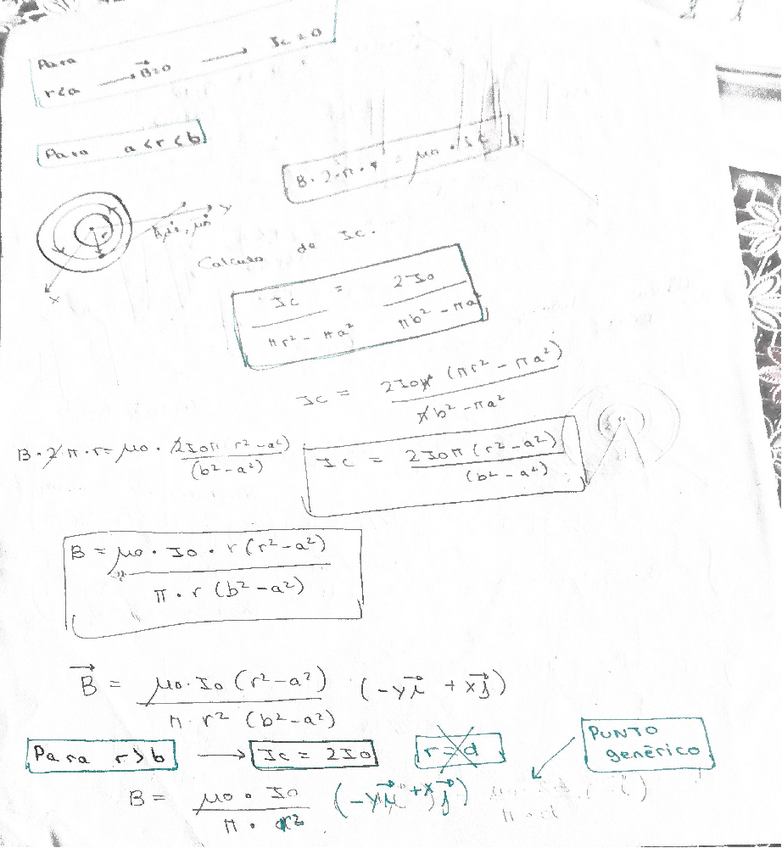 Para
r<a → B⃗=0 → Ic = 0
Para a < r < b
B · 2 · π · r = μ0 · Ic
Y
X
Calculo de Ic.
Ic / (πr² − πa²) = 2I0 / (πb² − πa²)
Ic = 2I0 (πr² − πa²) / (πb² − πa²)
B · 2 · π · r = μ0 · 2I0π r² − a²) / (b² − a²)
Ic = 2I0π (r² − a²) / (b² − a²)
B = μ0 · I0 · r (r² − a²) / π · r (b² − a²)
B⃗ = μ0 · I0 (r² − a²) / π · r² (b² − a²) (−yi⃗ + xj⃗)
Para r > b → Ic = 2I0 r = d
PUNTO
genérico
B = μ0 · I0 / π · r² (−yi⃗ + xj⃗)